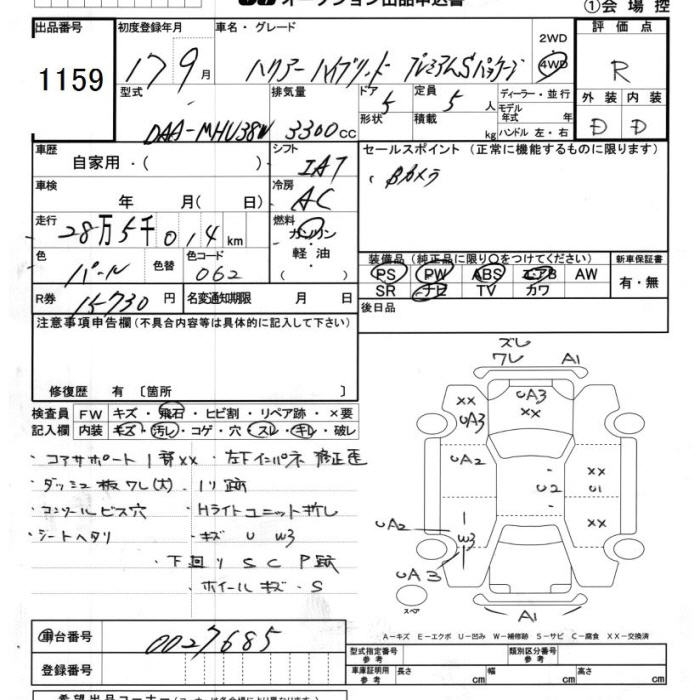 オークション出品申込書 ①会場控
出品番号 初度登録年月 車名・グレード 2WD 評価点
1159 17 9月 ハリアーハイブリッド プレミアムSパッケージ 4WD R
型式 排気量 ドア 5 定員 5人 ディーラー・並行 外装 内装
DAA-MHU38W 3300cc 形状 積載 kg モデル年式 年式 ハンドル 左・右 D D
車歴 自家用・( ) シフト IAT セールスポイント (正常に機能するものに限ります)
車検 年 月( 日) 冷房 AC ・Bカメラ
走行 28万5千014km 燃料 ガソリン 軽油 ( )
色 パール 色替 色コード 062 装備品 (純正品に限り○をつけてください) 新車保証書
PS PW ABS エアB AW 有・無
R券 15730円 名変通知期限 月 日 SR ナビ TV カワ
注意事項申告欄 (不具合内容等は具体的に記入して下さい) 後日品
修復歴 有 [箇所 ]
検査員 FW キズ・飛石・ヒビ割・リペア跡・×要
記入欄 内装 キズ・汚レ・コゲ・穴・スレ・キレ・破レ
・コアサポート1部XX ・左下インパネ修正歴
・ダッシュ板ワレ(大) ・1リ跡
・コンソールビス穴 ・Hライトユニット折レ
・シートヘタリ ・キズ U W3
・下回リ S C P跡
・ホイールキズ・S
ズレ
ワレ A1
UA3
XX XX
UA3
UA2
XX
U2 U1
XX
UA2
W3
UA3
スペア
A1
A−キズ E−エクボ U−凹み W−補修跡 S−サビ C−腐食 XX−交換済
車台番号 0027685
登録番号
型式指定番号 参考 類別区分番号 参考
車庫証明用 参考 長さ cm 幅 cm 高さ cm